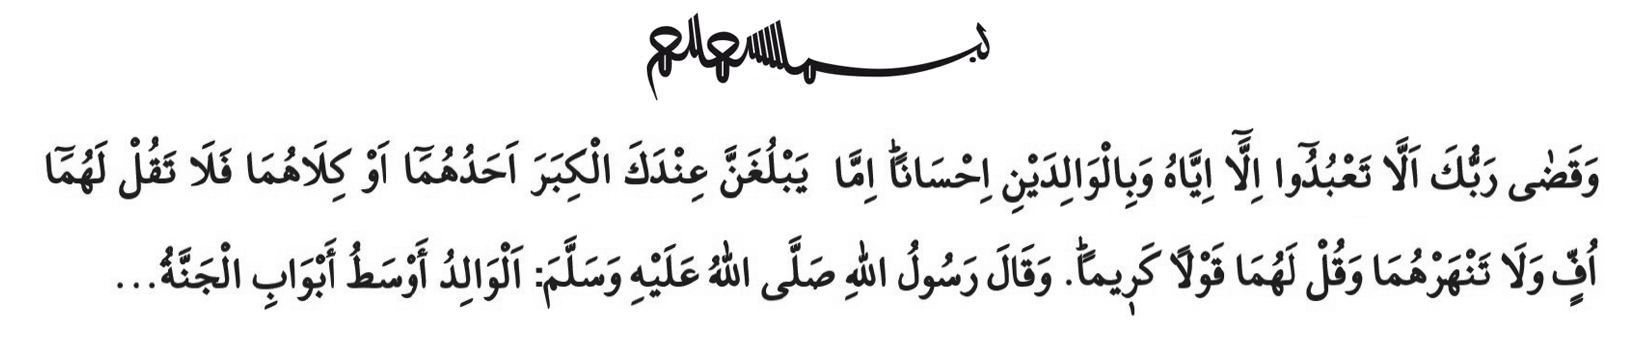 بسم الله الرحمن الرحيم
وَقَضٰى رَبُّكَ اَلَّا تَعْبُدُٓوا اِلَّٓا اِيَّاهُ وَبِالْوَالِدَيْنِ اِحْسَاناًؕ اِمَّا يَبْلُغَنَّ عِنْدَكَ الْكِبَرَ اَحَدُهُمَٓا اَوْ كِلَاهُمَا فَلَا تَقُلْ لَهُمَٓا
اُفٍّ وَلَا تَنْهَرْهُمَا وَقُلْ لَهُمَا قَوْلاً كَرٖيماًؕ. وَقَالَ رَسُولُ اللهِ صَلَّى اللهُ عَلَيْهِ وَسَلَّمَ: اَلْوَالِدُ أَوْسَطُ أَبْوَابِ الْجَنَّةُ...